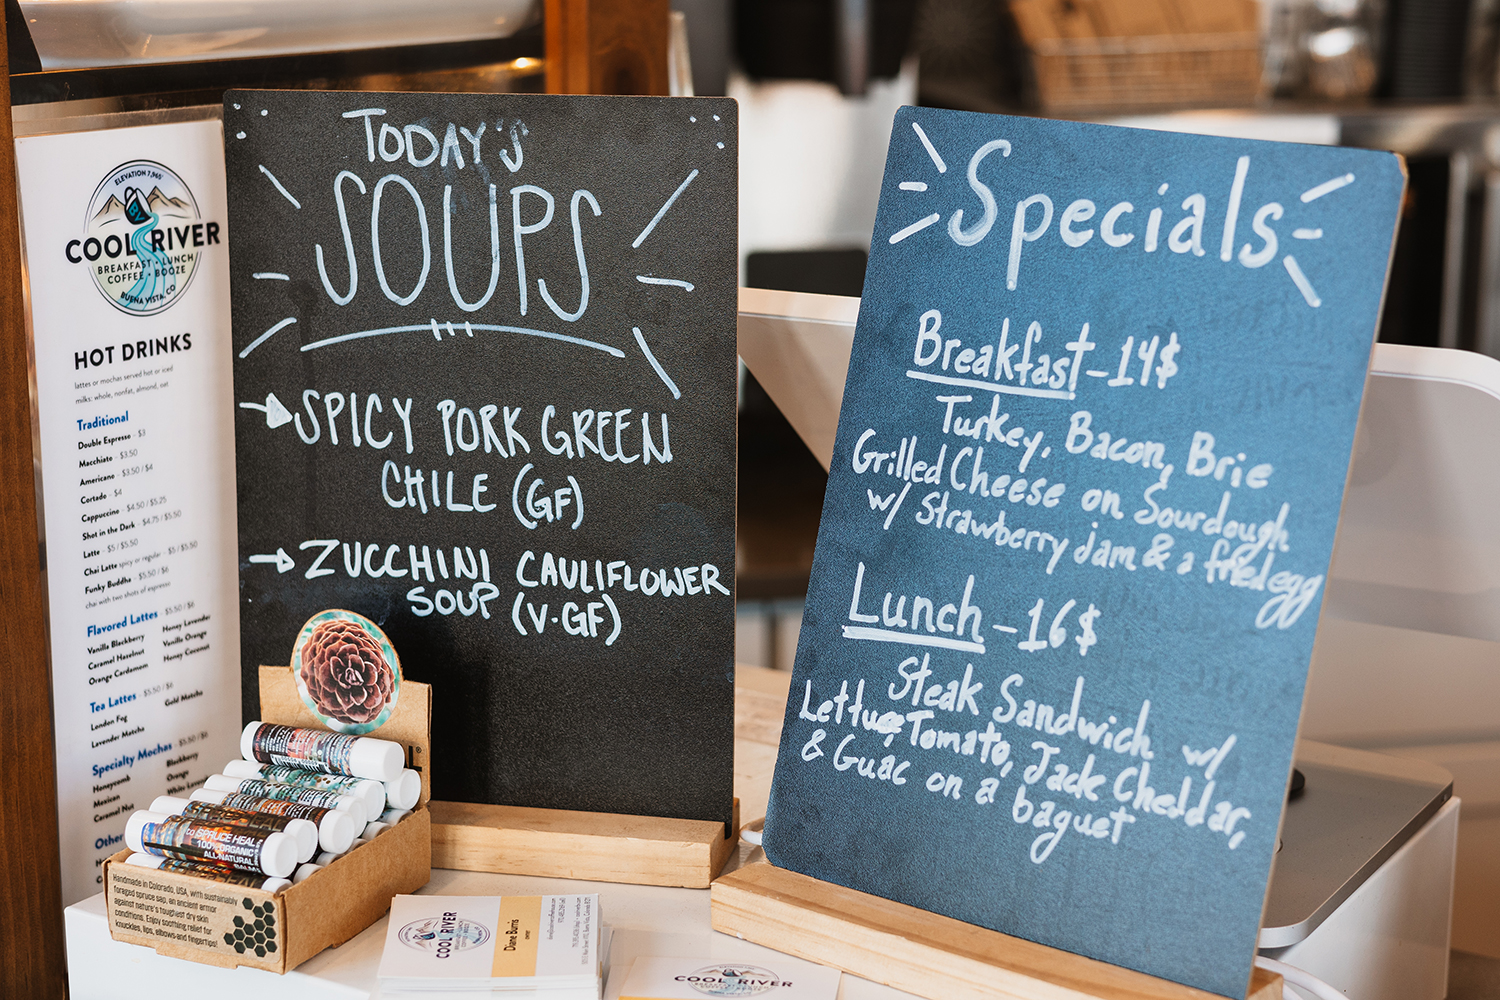 ELEVATION 7,965'
BV
COOL RIVER
BREAKFAST • LUNCH
COFFEE • BOOZE
BUENA VISTA, CO
HOT DRINKS
lattes or mochas served hot or iced
milks: whole, nonfat, almond, oat
Traditional
Double Espresso - $3
Macchiato - $3.50
Americano - $3.50 / $4
Cortado - $4
Cappuccino - $4.50 / $5.25
Shot in the Dark - $4.75 / $5.50
Latte - $5 / $5.50
Chai Latte spicy or regular - $5 / $5.50
Funky Buddha - $5.50 / $6
chai with two shots of espresso
Flavored Lattes - $5.50 / $6
Vanilla Blackberry Honey Lavender
Caramel Hazelnut Vanilla Orange
Orange Cardamom Honey Coconut
Tea Lattes - $5.50 / $6
London Fog Gold Matcha
Lavender Matcha
Specialty Mochas - $5.50 / $6
Honeycomb Blackberry
Mexican Orange
Caramel Nut White
Other
TODAY'S
SOUPS
SPICY PORK GREEN
CHILE (GF)
ZUCCHINI CAULIFLOWER
SOUP (V-GF)
Specials
Breakfast - 14$
Turkey, Bacon, Brie
Grilled Cheese on Sourdough
w/ Strawberry jam & a fried egg
Lunch - 16$
Steak Sandwich w/
Lettuce, Tomato, Jack Cheddar,
& Guac on a
baguet
SPRUCE HEAL
100% ORGANIC
ALL NATURAL
BALM
Handmade in Colorado, USA, with sustainably
foraged spruce sap, an ancient armor
against nature's toughest dry skin
conditions. Enjoy soothing relief for
knuckles, lips, elbows and fingertips!
COOL RIVER
Diane Burris
COOL RIVER